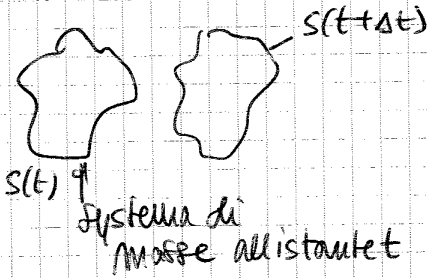 S(t+Δt)
S(t)
Systema di
masse all'istante t